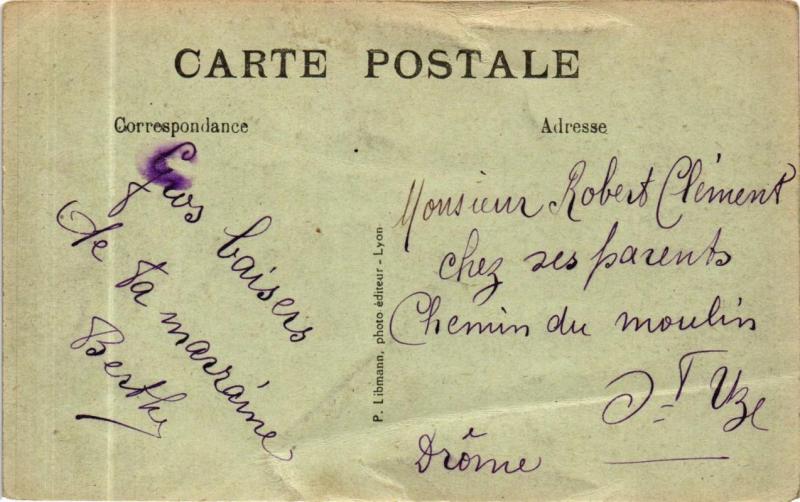 CARTE POSTALE
Correspondance
Adresse
Gros baisers
de ta marraine
Berthe
P. Libmann, photo éditeur - Lyon
Monsieur Robert Clément
chez ses parents
Chemin du moulin
St Uze
Drôme